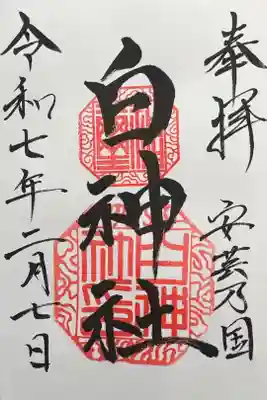 奉拝
安芸乃国
白神社
令和七年二月七日